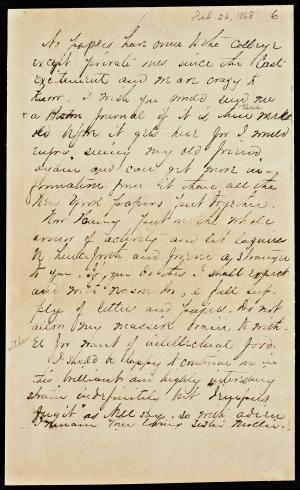 Feb 26, 1868 6
No papers have come to the College
except private ones since the last
excitement and we are crazy to
know. I wish you would send me
a Boston Journal if it is three weeks
old before it gets here for I would
enjoy seeing my old friend
again and can get more in-
formation from it than all the
New York Papers put together.
Now Fanny put on the whole
armor of activity and let
be henceforth and forever a stranger
to you. If you do this I shall expect
and with reason too, a full sup-
ply of letters and papers. Do not
allow your massive brain to with-
er for want of intellectual food.
I should be happy to continue on in
this brilliant and highly interesting
strain indefinitely but "tempus
fugit" as Nell says, so with adieu
I remain Your loving sister Mollie.